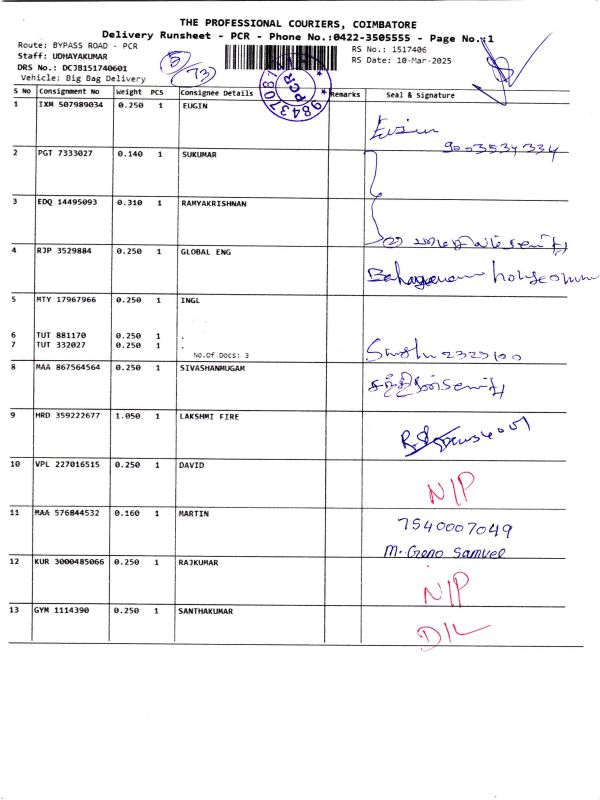 THE PROFESSIONAL COURIERS, COIMBATORE
Delivery Runsheet - PCR - Phone No.:0422-3505555 - Page No.:1
Route: BYPASS ROAD - PCR
RS No.: 1517406
Staff: UDHAYAKUMAR
RS Date: 10-Mar-2025
DRS No.: DCJB151740601
Vehicle: Big Bag Delivery
5/73
PCR
S No Consignment No Weight PCS Consignee Details Remarks Seal & Signature
1 IXM 507989034 0.250 1 EUGIN
9003534334
2 PGT 7333027 0.140 1 SUKUMAR
3 EDQ 14495093 0.310 1 RAMYAKRISHNAN
4 RJP 3529884 0.250 1 GLOBAL ENG
5 MTY 17967966 0.250 1 INGL
6 TUT 881170 0.250 1 .
7 TUT 332027 0.250 1 .
No.Of Docs: 3
2323100
8 MAA 867564564 0.250 1 SIVASHANMUGAM
9 HRD 359222677 1.050 1 LAKSHMI FIRE
10 VPL 227016515 0.250 1 DAVID
N/P
11 MAA 576844532 0.160 1 MARTIN
7540007049
M. Geno Samuel
12 KUR 3000485066 0.250 1 RAJKUMAR
N/P
13 GYM 1114390 0.250 1 SANTHAKUMAR
D/L